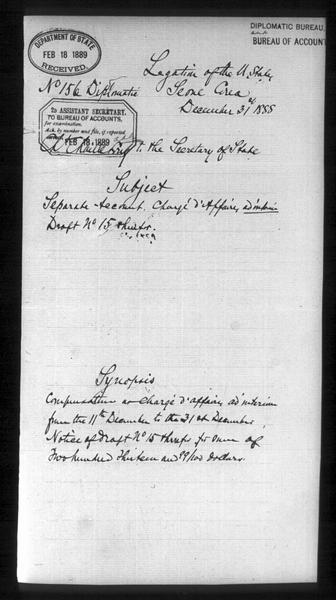 DIPLOMATIC BUREAU,
BUREAU OF ACCOUNT
DEPARTMENT OF STATE
FEB 18 1889
RECEIVED.
Legation of the U. States
No 156 Diplomatic
December 31st 1888
To ASSISTANT SECRETARY.
TO BUREAU OF ACCOUNTS,
for examination.
Ack. by number and file, if reported
FEB 18 1889
to the Secretary of State
Subject
Separate Account. Chargé d'Affaires ad interim
Draft No 15 therefor.
Synopsis
Compensation as Chargé d'affaires ad interim
from the 11th December to the 31st December,
Notice of Draft No 15 therefor for sum of
Two hundred Thirteen and 99/100 Dollars.